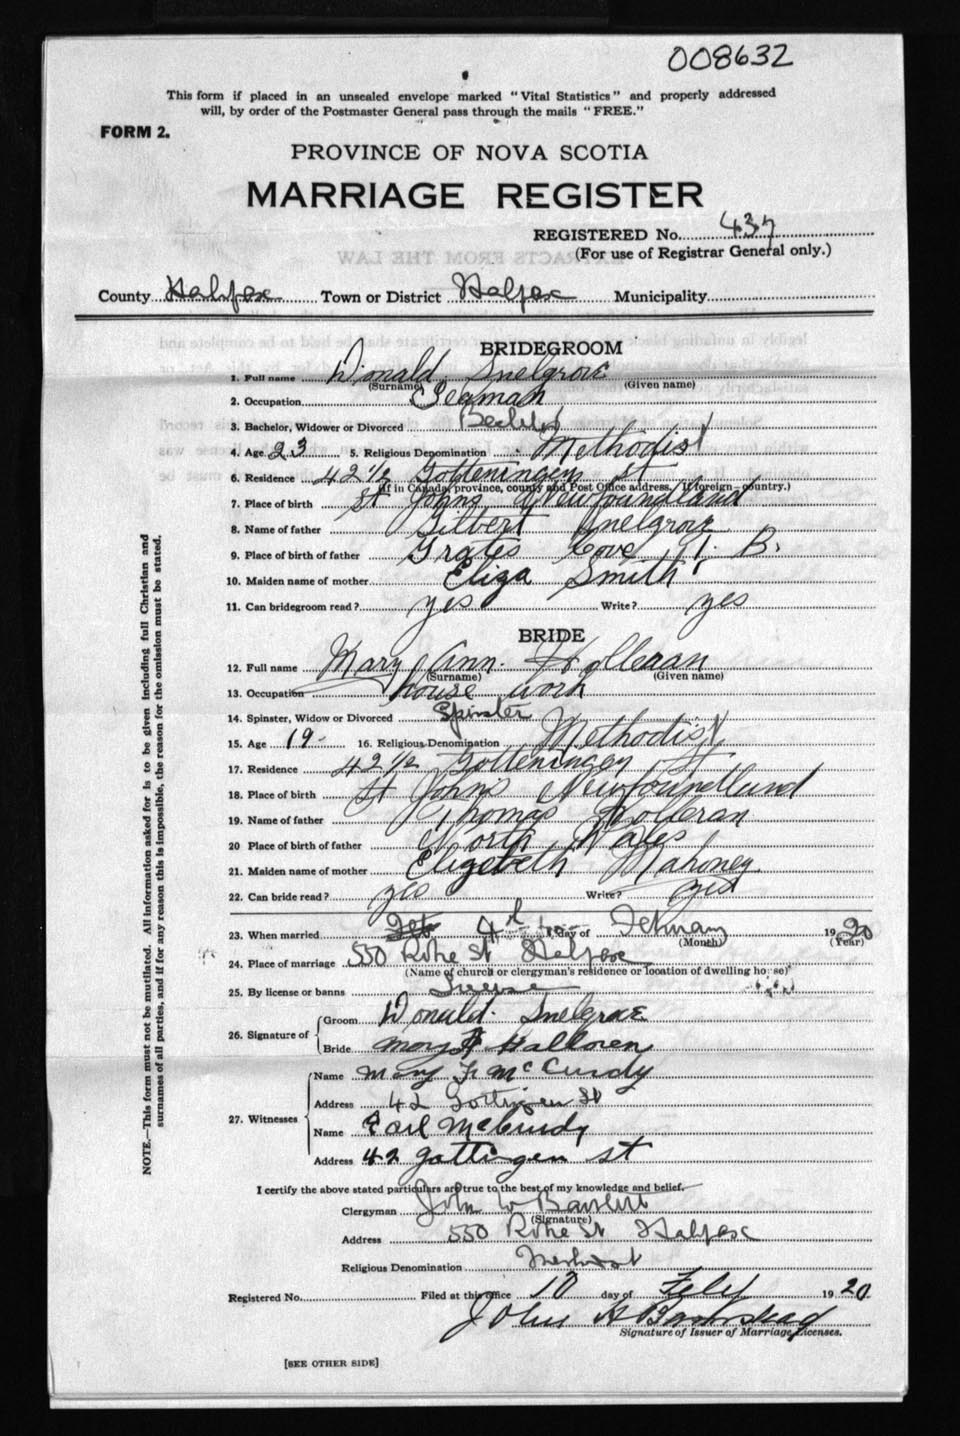 008632
This form if placed in an unsealed envelope marked "Vital Statistics" and properly addressed
will, by order of the Postmaster General pass through the mails "FREE."
FORM 2.
PROVINCE OF NOVA SCOTIA
MARRIAGE REGISTER
REGISTERED No. 437
(For use of Registrar General only.)
County Halifax Town or District Halifax Municipality
BRIDEGROOM
1. Full name Donald Snelgrove
(Surname) (Given name)
2. Occupation Seaman
3. Bachelor, Widower or Divorced Bachelor
4. Age 23 5. Religious Denomination Methodist
6. Residence 42 1/2 Gotteningen St
(If in Canada, province, county and Post Office address, if foreign—country.)
7. Place of birth St Johns Newfoundland
8. Name of father Gilbert Snelgrove
9. Place of birth of father Grates Cove T. B.
10. Maiden name of mother Eliza Smith
11. Can bridegroom read? yes Write? yes
BRIDE
12. Full name Mary Ann. Holleran
(Surname) (Given name)
13. Occupation house work
14. Spinster, Widow or Divorced Spinster
15. Age 19 16. Religious Denomination Methodist
17. Residence 42 1/2 Gotteningen St
18. Place of birth St John's Newfoundland
19. Name of father Thomas Holleran
20 Place of birth of father North Wales
21. Maiden name of mother Elizebeth Mahoney
22. Can bride read? yes Write? yes
23. When married 4th day of February 1920
(Month) (Year)
24. Place of marriage 550 St Halifax
(Name of church or clergyman's residence or location of dwelling house)
25. By license or banns License
26. Signature of Groom Donald Snelgrove
Bride Mary A Halloren
27. Witnesses Name Mary F. McCurdy
Address 42 Gottingen St
Name Earl McCurdy
Address 42 gottingen st
I certify the above stated particulars are true to the best of my knowledge and belief.
Clergyman John W Bartlett
(Signature)
Address 550 St Halifax
Religious Denomination Methodist
Registered No. Filed at this office 10 day of Feby 1920
John H
Signature of Issuer of Marriage Licenses.
[SEE OTHER SIDE]
NOTE.—This form must not be mutilated. All information asked for is to be given including full Christian and
surnames of all parties, and if for any reason this is impossible, the reason for the omission must be stated.